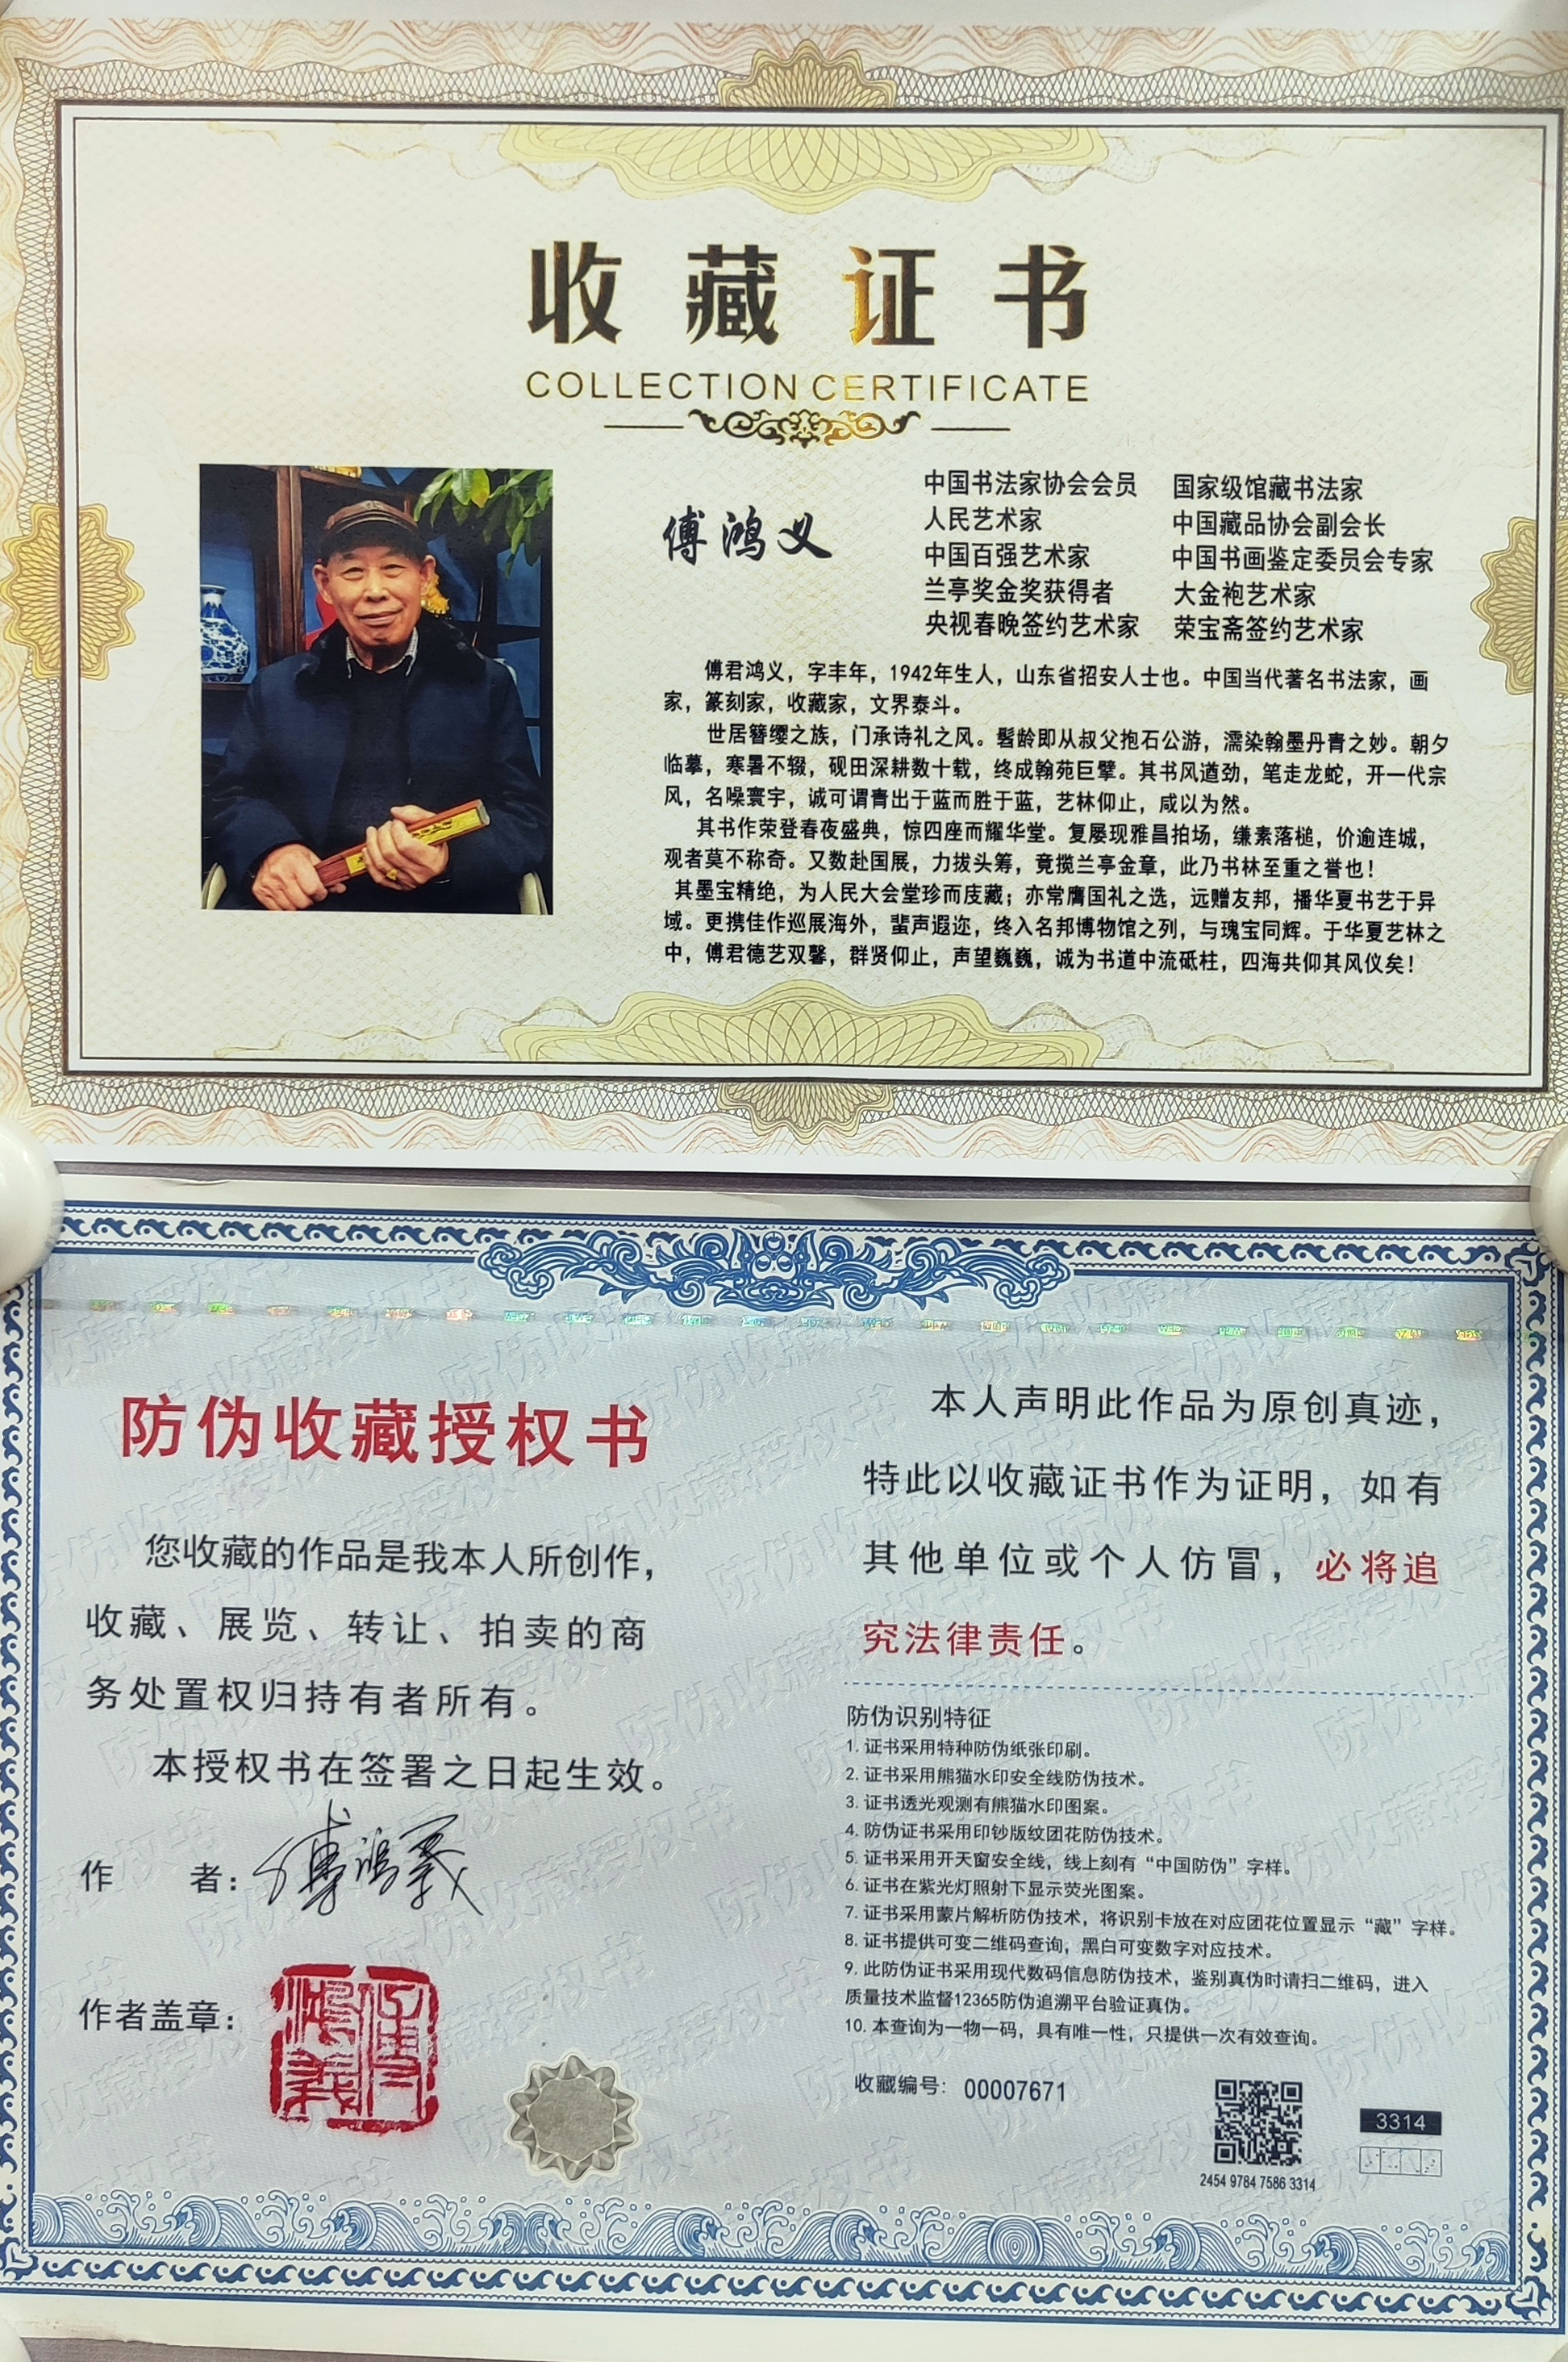 收藏证书
COLLECTION CERTIFICATE
傅鸿义
中国书法家协会会员
人民艺术家
中国百强艺术家
兰亭奖金奖获得者
央视春晚签约艺术家
国家级馆藏书法家
中国藏品协会副会长
中国书画鉴定委员会专家
大金袍艺术家
荣宝斋签约艺术家
傅君鸿义，字丰年，1942年生人，山东省招安人士也。中国当代著名书法家，画
家，篆刻家，收藏家，文界泰斗。
世居簪缨之族，门承诗礼之风。髫龄即从叔父抱石公游，濡染翰墨丹青之妙。朝夕
临摹，寒暑不辍，砚田深耕数十载，终成翰苑巨擘。其书风遒劲，笔走龙蛇，开一代宗
风，名噪寰宇，诚可谓青出于蓝而胜于蓝，艺林仰止，咸以为然。
其书作荣登春夜盛典，惊四座而耀华堂。复屡现雅昌拍场，缣素落槌，价逾连城，
观者莫不称奇。又数赴国展，力拔头筹，竟揽兰亭金章，此乃书林至重之誉也！
其墨宝精绝，为人民大会堂珍而庋藏；亦常膺国礼之选，远赠友邦，播华夏书艺于异
域。更携佳作巡展海外，蜚声遐迩，终入名邦博物馆之列，与瑰宝同辉。于华夏艺林之
中，傅君德艺双馨，群贤仰止，声望巍巍，诚为书道中流砥柱，四海共仰其风仪矣！
防伪收藏授权书
您收藏的作品是我本人所创作，
收藏、展览、转让、拍卖的商
务处置权归持有者所有。
本授权书在签署之日起生效。
作 者：傅鸿義
作者盖章：
傅鴻義
本人声明此作品为原创真迹，
特此以收藏证书作为证明，如有
其他单位或个人仿冒，必将追
究法律责任。
防伪识别特征
1. 证书采用特种防伪纸张印刷。
2. 证书采用熊猫水印安全线防伪技术。
3. 证书透光观测有熊猫水印图案。
4. 防伪证书采用印钞版纹团花防伪技术。
5. 证书采用开天窗安全线，线上刻有“中国防伪”字样。
6. 证书在紫光灯照射下显示荧光图案。
7. 证书采用蒙片解析防伪技术，将识别卡放在对应团花位置显示“藏”字样。
8. 证书提供可变二维码查询，黑白可变数字对应技术。
9. 此防伪证书采用现代数码信息防伪技术，鉴别真伪时请扫二维码，进入
质量技术监督12365防伪追溯平台验证真伪。
10. 本查询为一物一码，具有唯一性，只提供一次有效查询。
收藏编号：00007671
3314
2454 9784 7586 3314